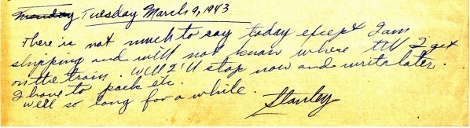 Monday Tuesday March 9, 1943
There is not much to say today except I am
shipping and will not know where till I get
on the train. Well I'll stop now and write later.
I have to pack etc.
Well so long for a while.
Stanley